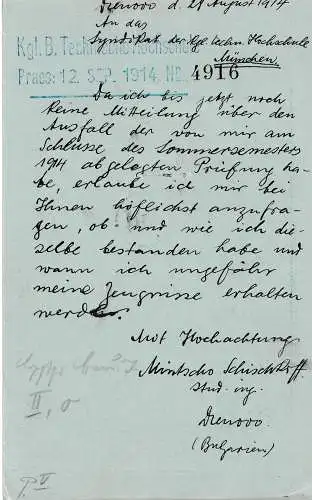 Drenovo d. 21 August 1914
An das
Syndikat der Kgl. techn. Hochschule
München.
Kgl. B. Technische Hochschule
Praes: 12. SEP. 1914. No. 4916
Da ich bis jetzt noch
keine Mitteilung über den
Ausfall der von mir am
Schlusse des Sommersemesters
1914 abgelegten Prüfung ha-
be, erlaube ich mir bei
Ihnen höflichst anzufra-
gen, ob und wie ich die-
selbe bestanden habe und
wann ich ungefähr
meine Zeugnisse erhalten
werde.
Mit Hochachtung
Mintscho Schischkoff
stud. ing.
Drenovo
(Bulgarien)
II, 0